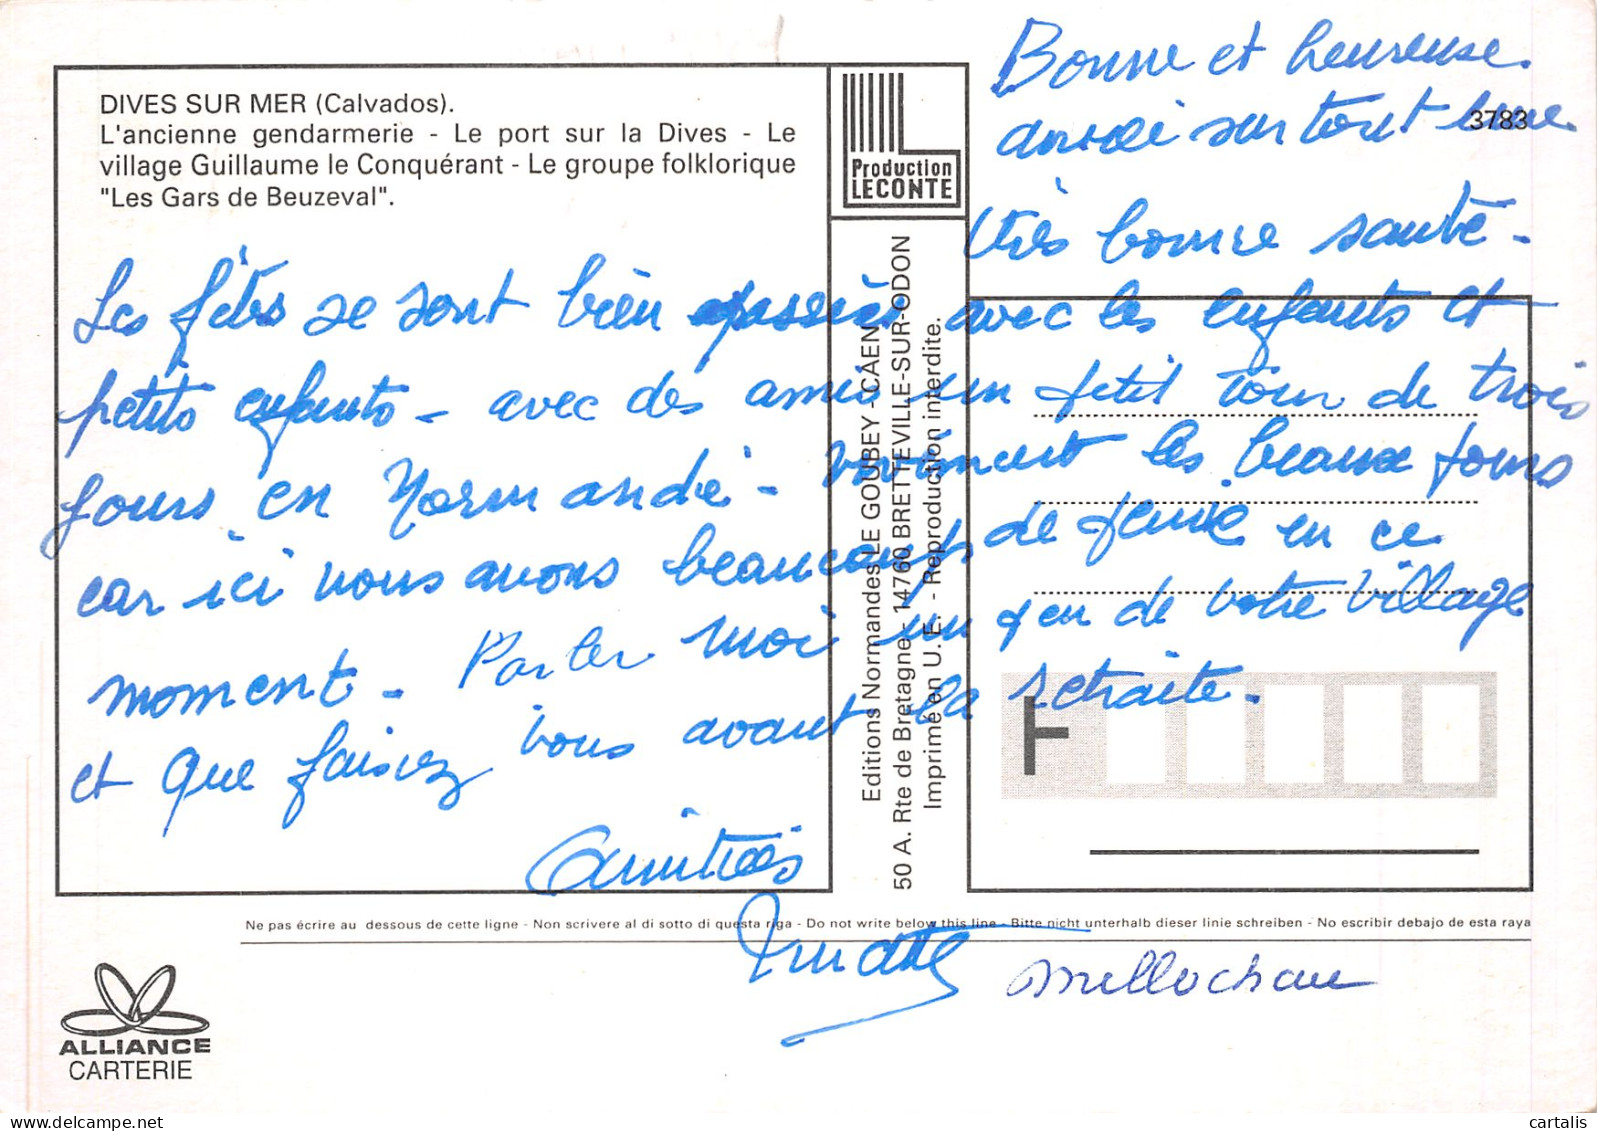 Bonne et heureuse
année surtout une
3783
très bonne santé -
DIVES SUR MER (Calvados).
L'ancienne gendarmerie - Le port sur la Dives - Le
village Guillaume le Conquérant - Le groupe folklorique
"Les Gars de Beuzeval".
Production
LECONTE
Les fêtes se sont bien passées avec les enfants et
petits enfants - avec des amis un petit tour de trois
jours en Normandie - vivement les beaux jours
car ici nous avons beaucoup de en ce
moment - Parler moi un peu de votre village
et que faisiez vous avant la retraite.
Amitiés
Millochau
Editions Normandes LE GOUBEY - CAEN
50 A. Rte de Bretagne - 14760 BRETTEVILLE-SUR-ODON
Imprimé en U.E. - Reproduction interdite.
F
Ne pas écrire au dessous de cette ligne - Non scrivere al di sotto di questa riga - Do not write below this line - Bitte nicht unterhalb dieser linie schreiben - No escribir debajo de esta raya
ALLIANCE
CARTERIE
cartalis